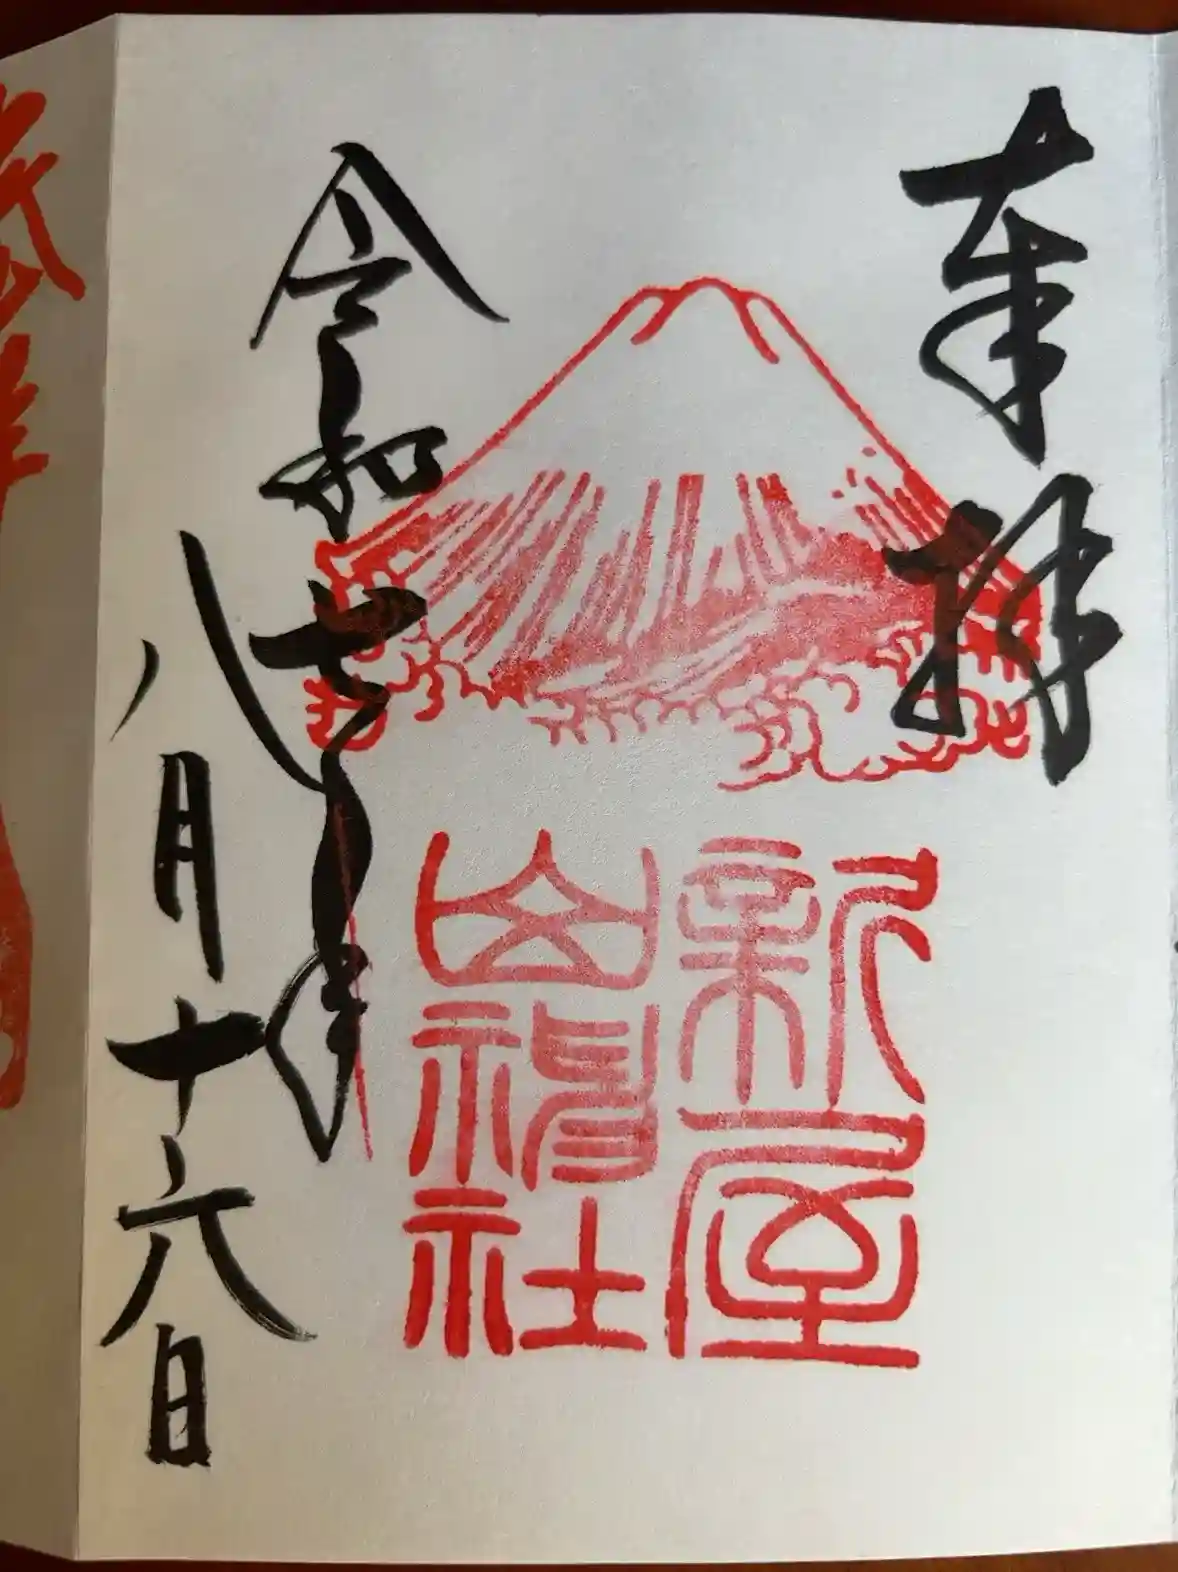 奉拝
新屋
山神社
令和七年
八月十六日